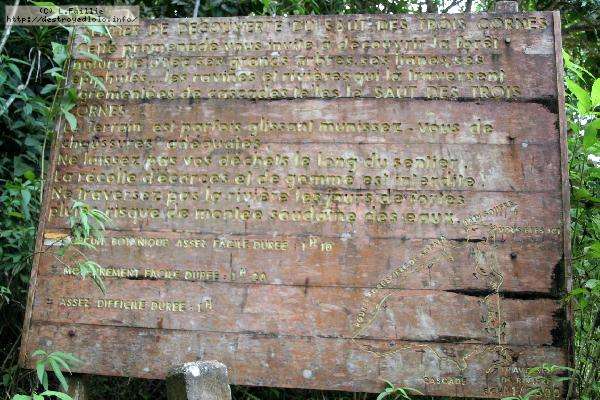 (C) L.Faillie
http://destroyedlolo.info/
SENTIER DE DECOUVERTE DU SAUT DES TROIS CORNES
Cette promenade vous invite à découvrir la forêt
naturelle avec ses grands arbres, ses lianes, ses
ses ravines et rivières qui la traversent
agrémentées de cascades telles la SAUT DES TROIS
CORNES
Le terrain est parfois glissant munissez-vous de
chaussures adéquates
Ne laissez pas vos déchets le long du sentier.
La récolte d'écorces et de gomme est interdite.
Ne traversez pas la rivière les jours de fortes
pluies risque de montée soudaine des eaux.
BOTANIQUE ASSEZ FACILE DUREE : 1H 10
MOYENNEMENT FACILE DUREE : 1H 20
ASSEZ DIFFICILE DUREE : 1H
VOUS ETES ICI
CASCADE